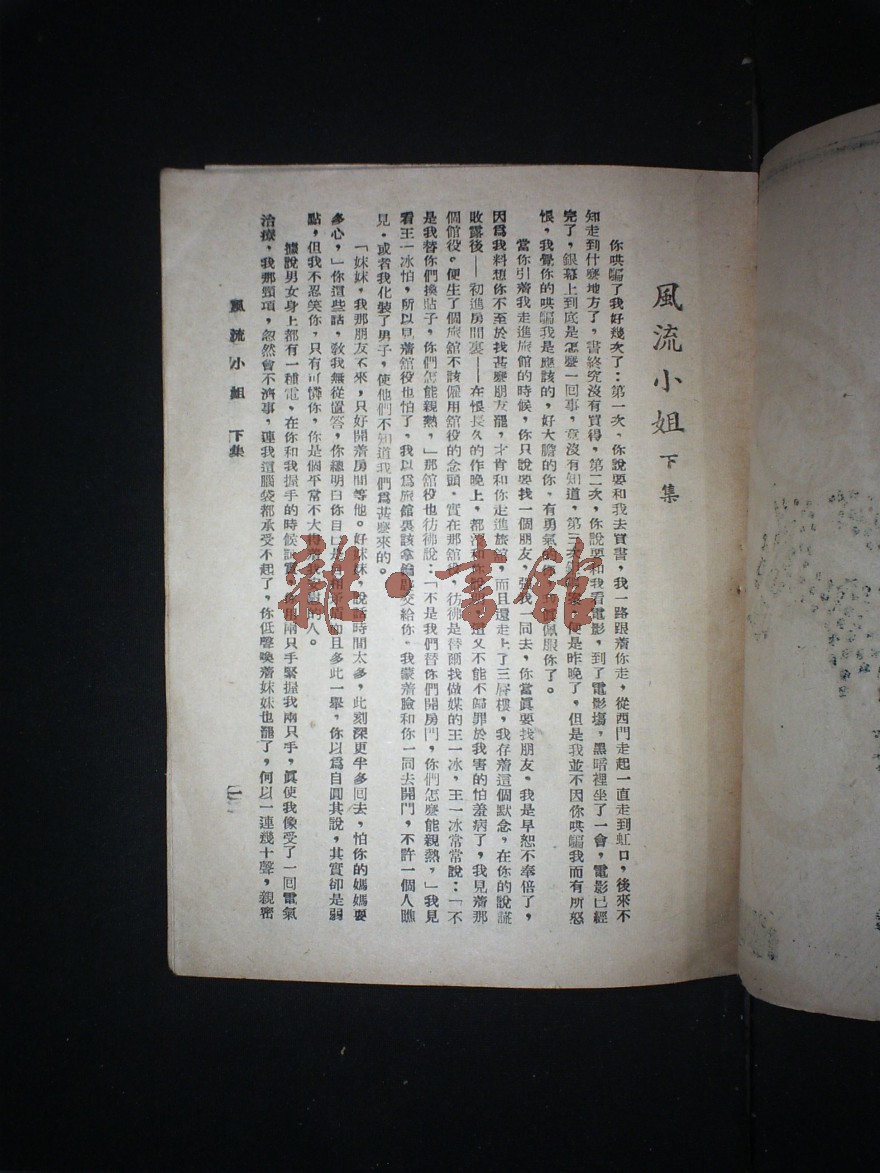 風流小姐 下集
你哄騙了我好幾次了：第一次，你說要和我去買書，我一路跟着你走，從西門走起一直走到虹口，後來不
知走到什麼地方了，書終究沒有買得，第二次，你說要和我看電影，到了電影場，黑暗裡坐了一會，電影已經
完了，銀幕上到底是怎麼一回事，竟沒有知道，第三次便是昨晚了，但是我並不因你哄騙我而有所怒
恨，我覺你的哄騙我是應該的，好大膽的你，有勇氣的佩服你了。
當你引着我走進旅館的時候，你只說要找一個朋友，强我一同去，你當眞要找朋友，我是早恕不奉倍了，
因爲我料想你不至於找甚麼朋友罷，才肯和你走進旅舘，而且還走上了三層樓，我存着這個默念，在你的說謊
收露後——初進房間裏——在恨長久的作晚上，都沒和你說又不能不歸罪於我害的怕羞病了，我見着那
個舘役。便生了個旅舘不該僱用舘役的念頭，實在那舘役，彷彿是替爾找做媒的王一冰，王一冰常常說：「不
是我替你們換貼子，你們怎能親熱，」那舘役也彷彿說：「不是我們替你們開房門，你們怎麼能親熱，」我見
看王一冰怕，所以見着舘役也怕了，我以爲旅館裏該拿鑰匙交給你。我蒙着臉和你一同去開門，不許一個人瞧
見，或者我化裝了男子，使他們不知道我們爲甚麼來的。
「妹妹，我那朋友不來，只好開着房間等他。好妹妹，說話時間太多，此刻深更半多回去，怕你的媽媽要
多心，」你這些話，敎我無從置答，你總明白你自己是自相矛盾而且多此一舉，你以爲自圓其說，其實卻是弱
點，但我不忍笑你，只有可憐你，你是個平常不大得着我安慰的人。
據說男女身上都有一種電、在你和我握手的時候試實，你用兩只手緊握我兩只手，眞使我像受了一囘電氣
治療，我那頸項，忽然會不濟事，連我這腦袋都承受不起了，你低聲喚着妹妹也罷了，何以一連幾十聲，親密
風流小姐 下集
一
雜·書館